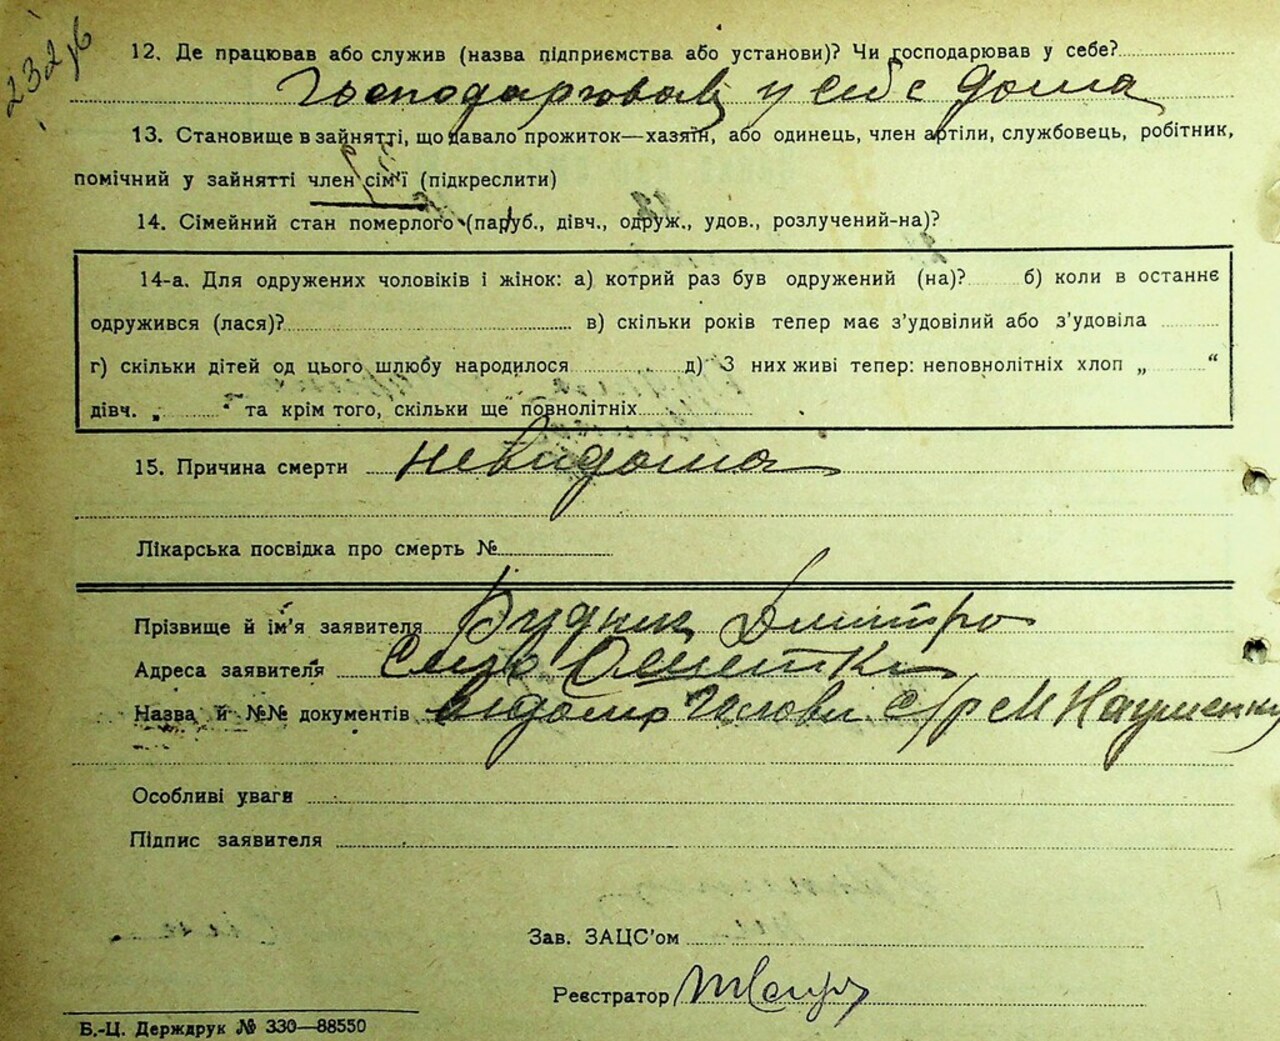 232
12. Де працював або служив (назва підприємства або установи)? Чи господарював у себе?
Господарював у себе дома
13. Становище в зайнятті, що давало прожиток—хазяїн, або одинець, член артіли, службовець, робітник,
помічний у зайнятті член сім'ї (підкреслити)
14. Сімейний стан померлого (паруб., дівч., одруж., удов., розлучений-на)?
14-а. Для одружених чоловіків і жінок: а) котрий раз був одружений (на)? б) коли в останнє
одружився (лася)? в) скільки років тепер має з'удовілий або з'удовіла
г) скільки дітей од цього шлюбу народилося д) З них живі тепер: неповнолітніх хлоп „ “
дівч. „ “ та крім того, скільки ще повнолітніх
15. Причина смерти невидома
Лікарська посвідка про смерть №
Прізвище й ім'я заявителя Рудник Дмитро
Адреса заявителя Село
Назва й №№ документів Голови с/р М Науменку
Особливі уваги
Підпис заявителя
Зав. ЗАЦС'ом
Реєстратор
Б.-Ц. Держдрук № 330—88550